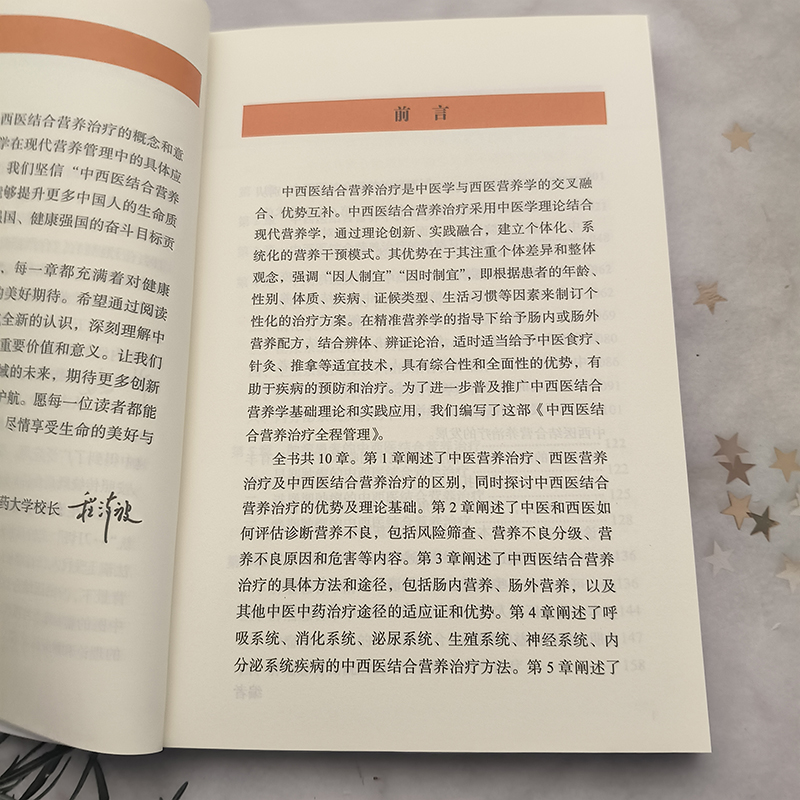 西医结合营养治疗的概念和意
学在现代营养管理中的具体应
我们坚信“中西医结合营养
够提升更多中国人的生命质
强国、健康强国的奋斗目标贡
，每一章都充满着对健康
的美好期待。希望通过阅读
全新的认识，深刻理解中
重要价值和意义。让我们
域的未来，期待更多创新
护航。愿每一位读者都能
尽情享受生命的美好与
药大学校长
前言
中西医结合营养治疗是中医学与西医营养学的交叉融
合、优势互补。中西医结合营养治疗采用中医学理论结合
现代营养学，通过理论创新、实践融合，建立个体化、系
统化的营养干预模式。其优势在于其注重个体差异和整体
观念，强调“因人制宜”“因时制宜”，即根据患者的年龄、
性别、体质、疾病、证候类型、生活习惯等因素来制订个
性化的治疗方案。在精准营养学的指导下给予肠内或肠外
营养配方，结合辨体、辨证论治，适时适当给予中医食疗、
针灸、推拿等适宜技术，具有综合性和全面性的优势，有
助于疾病的预防和治疗。为了进一步普及推广中西医结合
营养学基础理论和实践应用，我们编写了这部《中西医结
合营养治疗全程管理》。
全书共 10 章。第 1 章阐述了中医营养治疗、西医营养
治疗及中西医结合营养治疗的区别，同时探讨中西医结合
营养治疗的优势及理论基础。第 2 章阐述了中医和西医如
何评估诊断营养不良，包括风险筛查、营养不良分级、营
养不良原因和危害等内容。第 3 章阐述了中西医结合营养
治疗的具体方法和途径，包括肠内营养、肠外营养，以及
其他中医中药治疗途径的适应证和优势。第 4 章阐述了呼
吸系统、消化系统、泌尿系统、生殖系统、神经系统、内
分泌系统疾病的中西医结合营养治疗方法。第 5 章阐述了